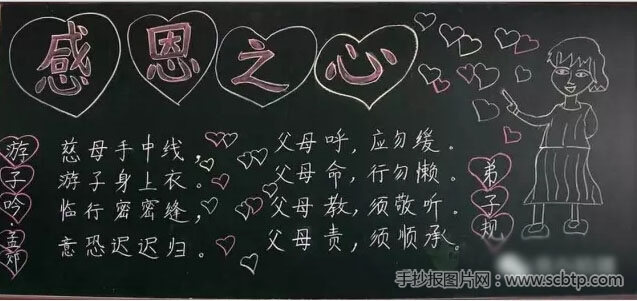 感恩之心
游子吟·孟郊
慈母手中线，
游子身上衣。
临行密密缝，
意恐迟迟归。
父母呼，应勿缓。
父母命，行勿懒。
父母教，须敬听。
父母责，须顺承。
弟子规
手抄报图片网：www.scbtp.com